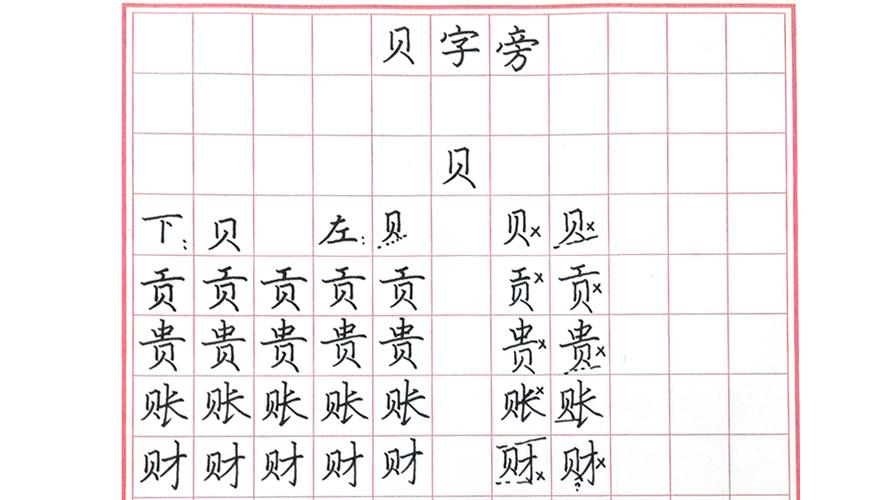 贝字旁
贝
下: 贝 左: 贝 贝× 贝×
贡贡贡贡贡 贡× 贡×
贵贵贵贵贵 贵× 贵×
账账账账账 账× 账
财财财财财 财× 财×